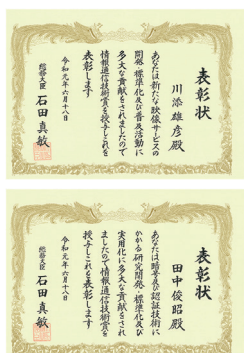 表彰状
川添雄彦殿
あなたは新たな映像サービスの
開発・標準化及び普及活動に
多大な貢献をされましたので
情報通信技術賞を授与しこれを
表彰します
令和元年六月十八日
総務大臣 石田真敏
表彰状
田中俊昭殿
あなたは暗号及び認証技術に
かかる研究開発・標準化及び
実用化に多大な貢献をされ
ましたので情報通信技術賞を
授与しこれを表彰します
令和元年六月十八日
総務大臣 石田真敏